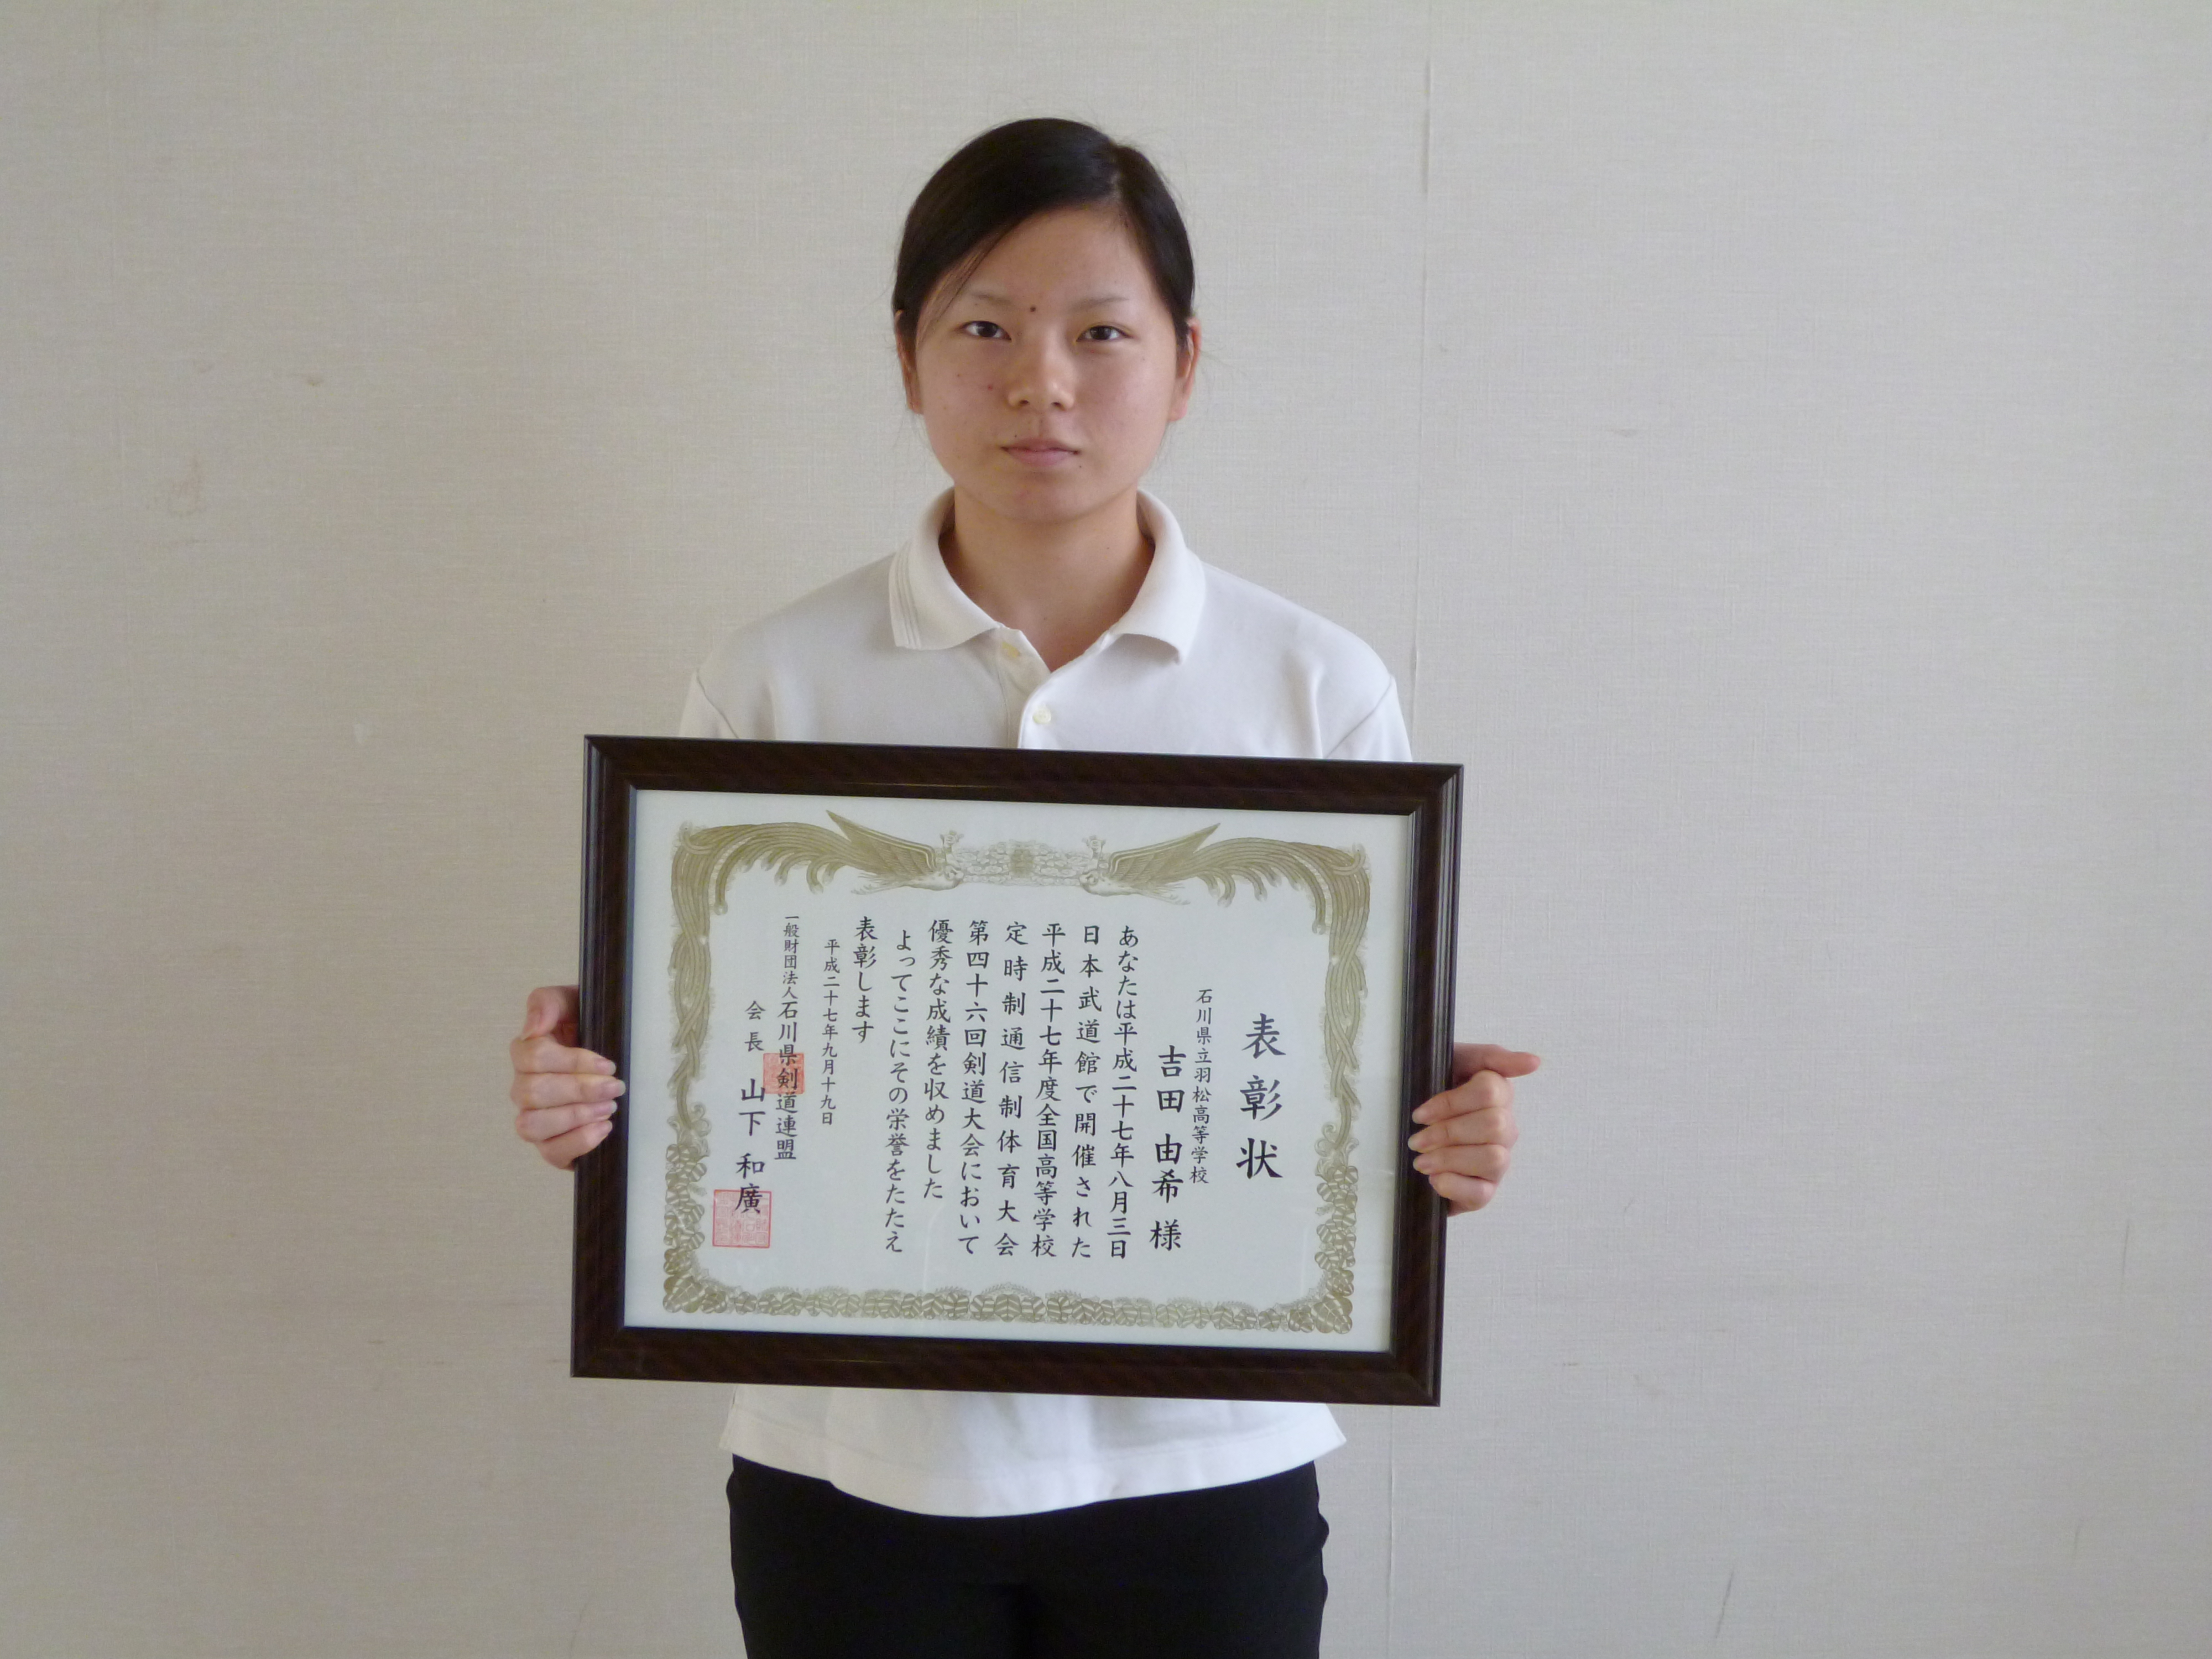 表彰状
石川県立羽松高等学校
吉田由希様
あなたは平成二十七年八月三日
日本武道館で開催された
平成二十七年度全国高等学校
定時制通信制体育大会
第四十六回剣道大会において
優秀な成績を収めました
よってここにその栄誉をたたえ
表彰します
平成二十七年九月十九日
一般財団法人石川県剣道連盟
会長 山下和廣